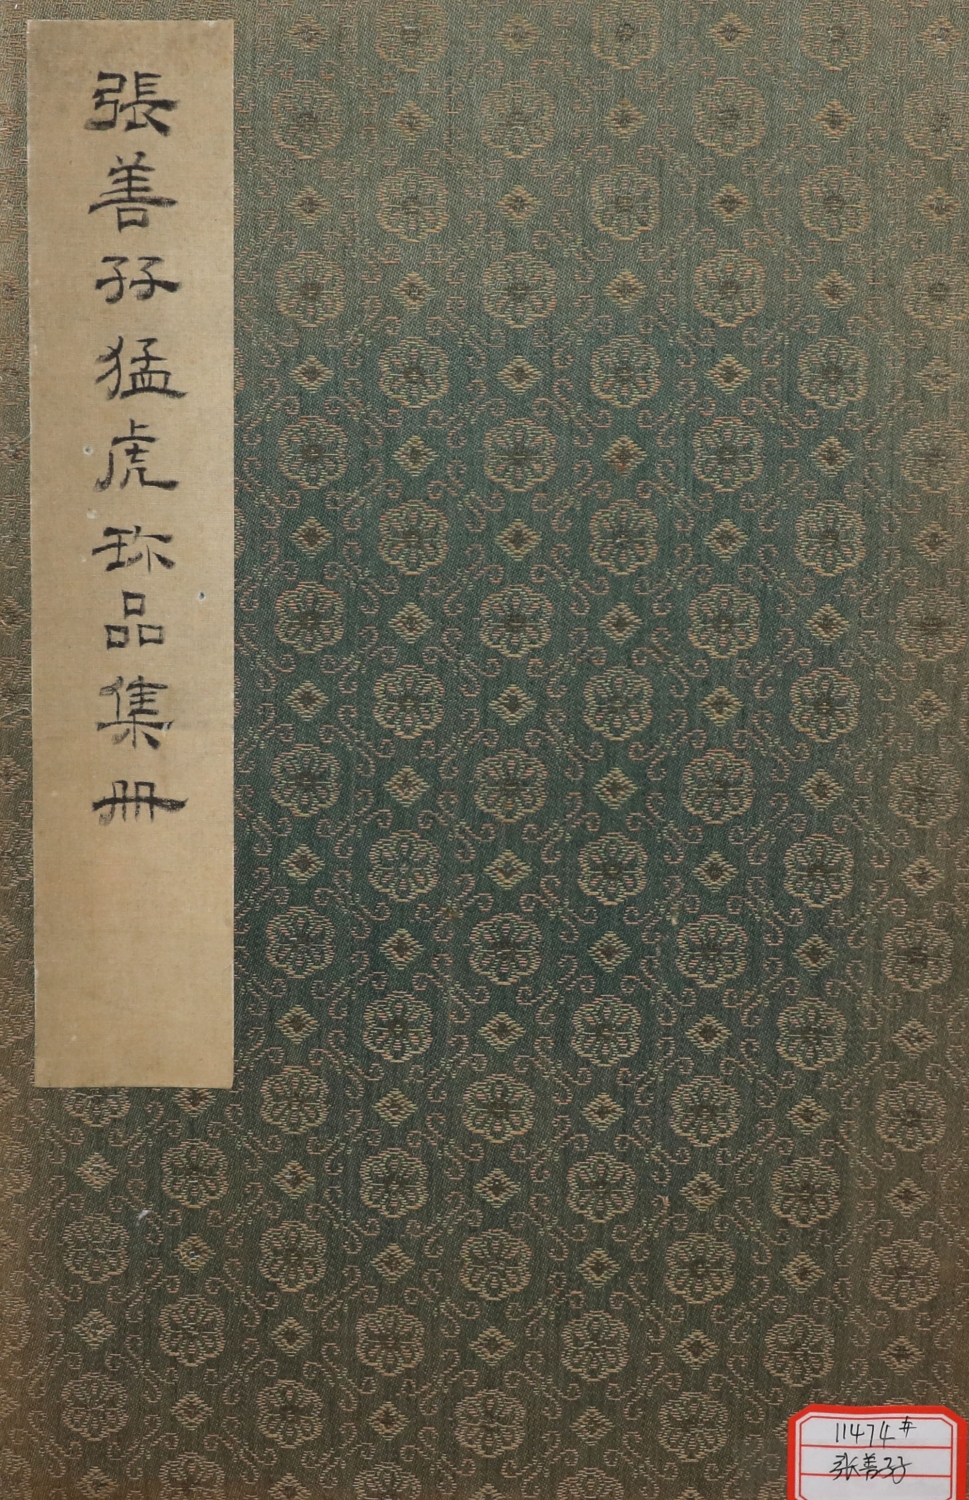 張善孖猛虎珎品集冊
11474#
张善孖